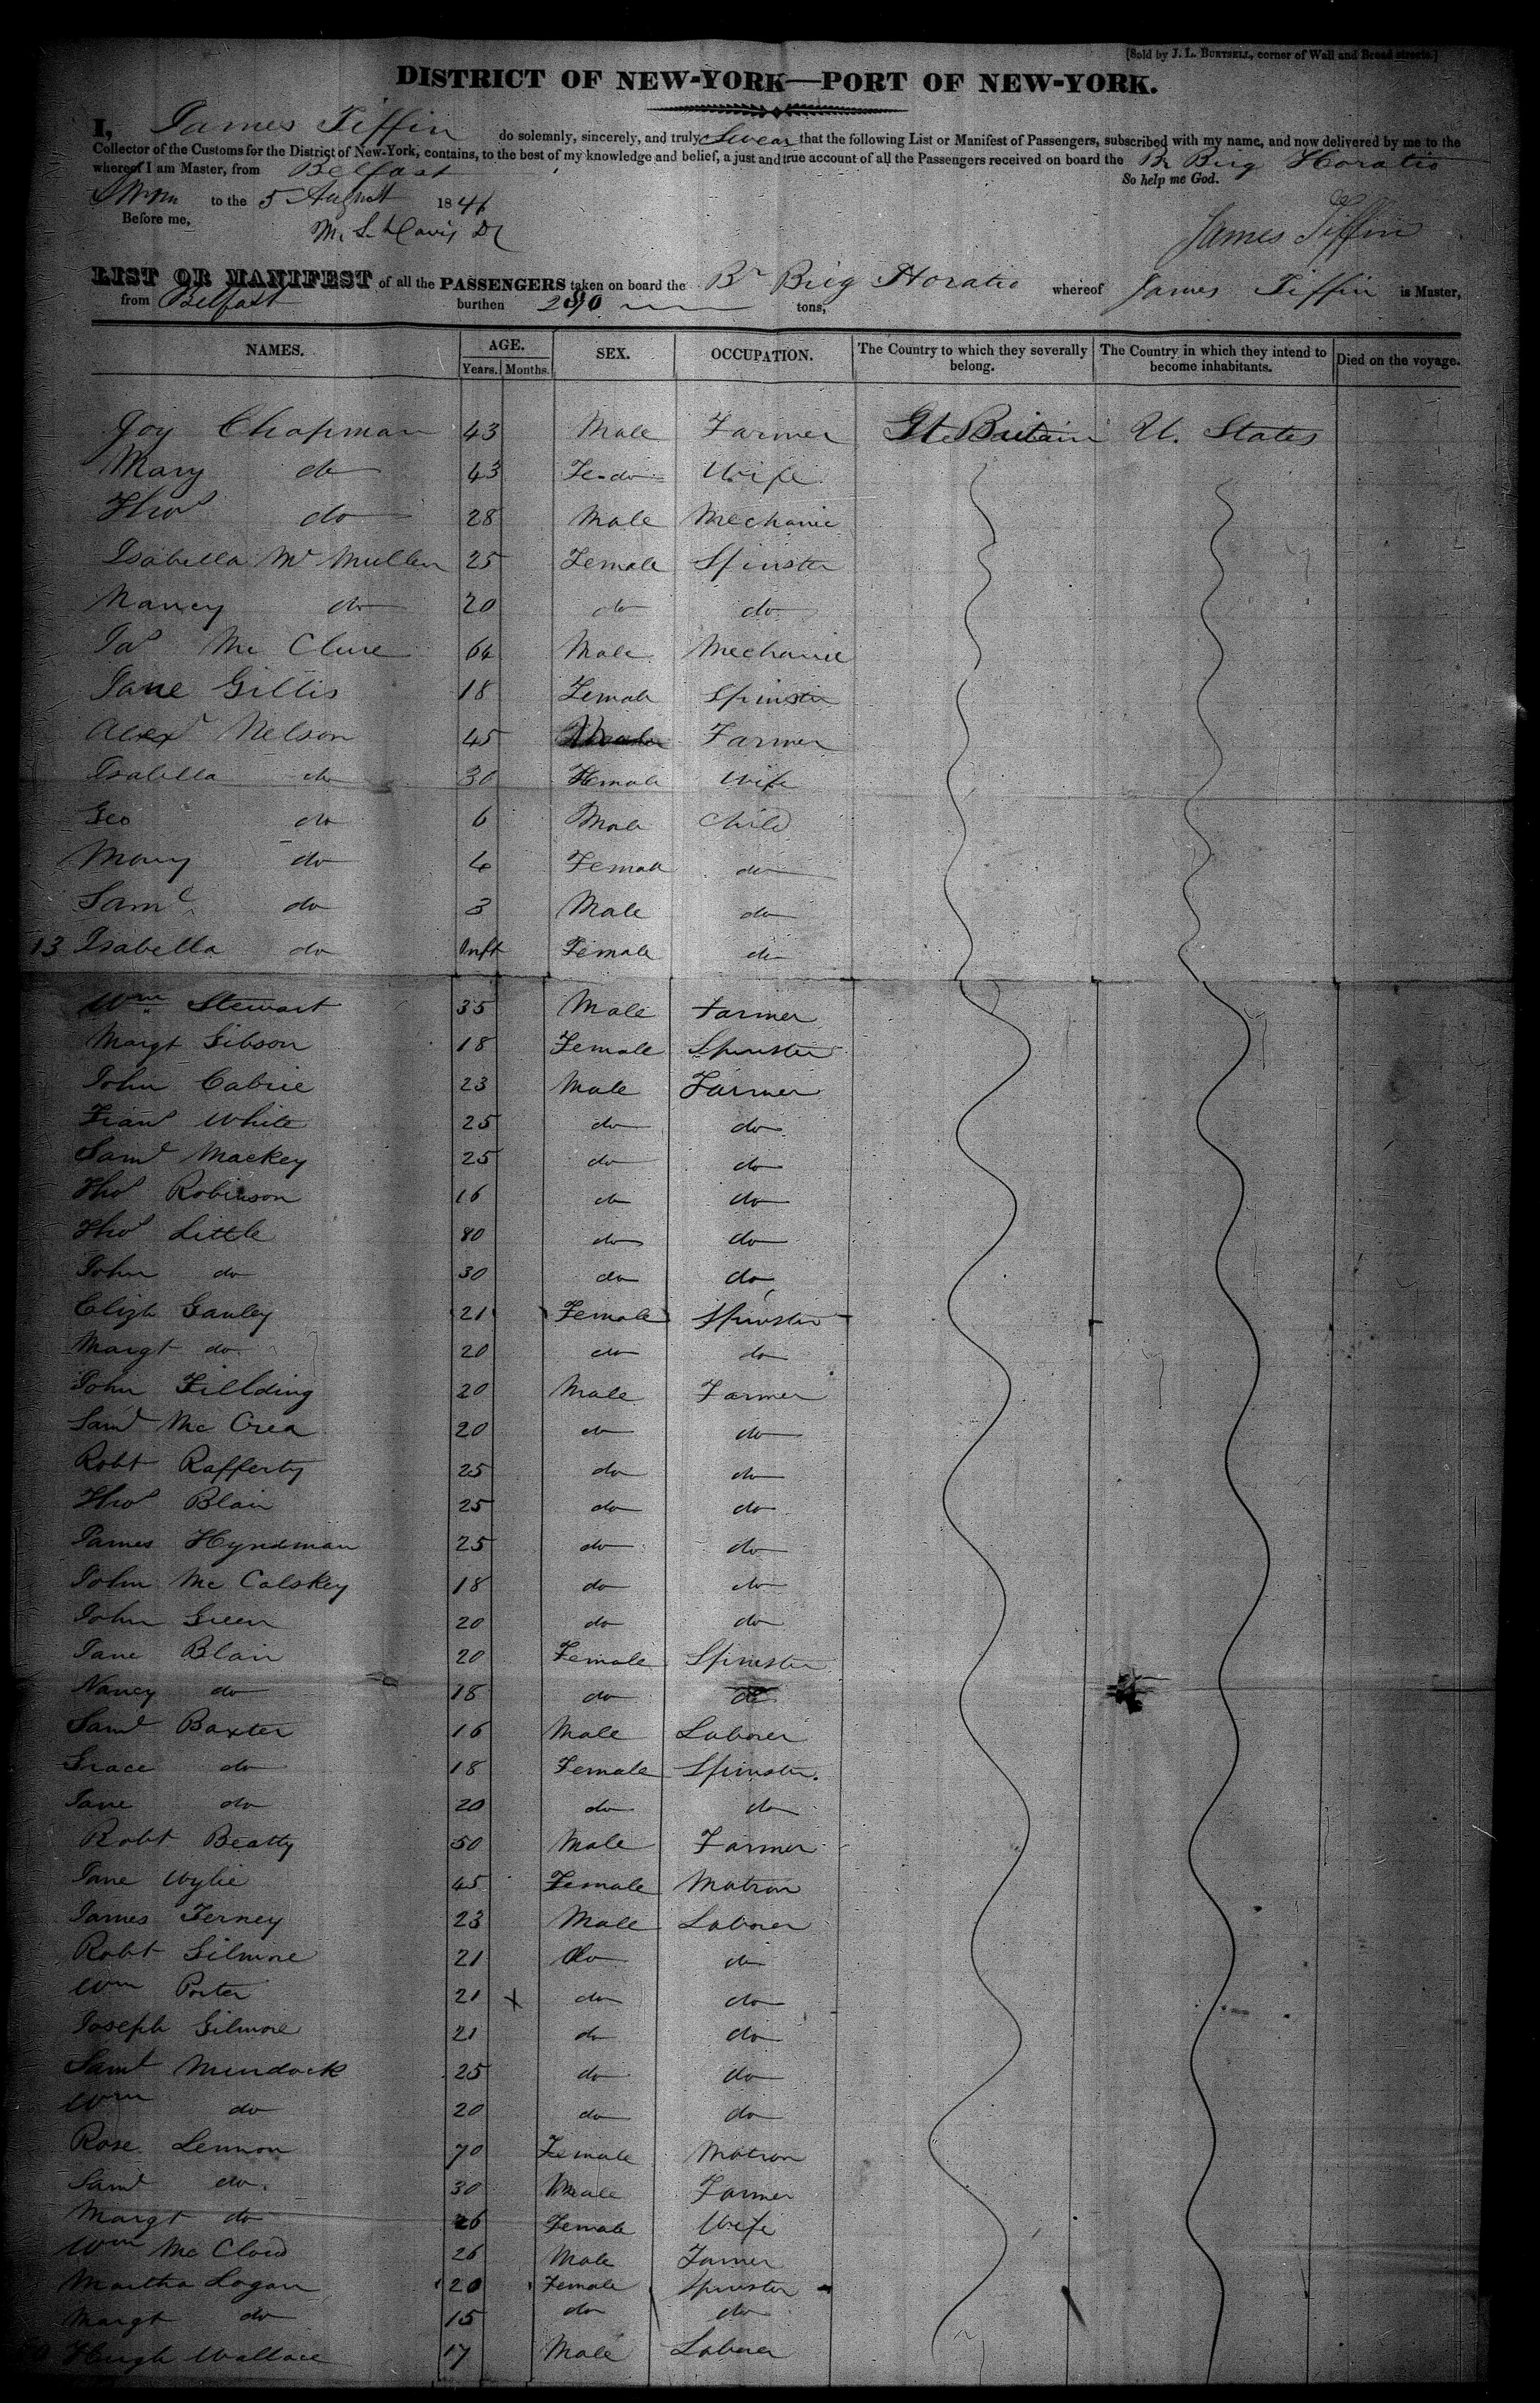 [Sold by J. L. BURTSELL, corner of Wall and Broad streets.]
DISTRICT OF NEW-YORK—PORT OF NEW-YORK.
I, James Tiffin do solemnly, sincerely, and truly Swear that the following List or Manifest of Passengers, subscribed with my name, and now delivered by me to the
Collector of the Customs for the District of New-York, contains, to the best of my knowledge and belief, a just and true account of all the Passengers received on board the Br Brig Horatio
whereof I am Master, from Belfast
So help me God.
Sworn to the 5 August 184
Before me,
James Tiffin
LIST OR MANIFEST of all the PASSENGERS taken on board the Br Brig Horatio whereof James Tiffin is Master,
from Belfast burthen tons,
NAMES. AGE. SEX. OCCUPATION. The Country to which they severally belong. The Country in which they intend to become inhabitants. Died on the voyage.
Years. Months.
Joy Chapman 43 Male Farmer Gt Britain U. States
Mary do 43 Fe-do Wife
Thos do 28 Male Mechanic
Isabella Mc Mullen 25 Female Spinster
Nancy do 20 do do
Jas Mc Clure 64 Male Mechanic
Jane Gillis 18 Female Spinster
Alexr Nelson 45 Farmer
Isabella do 30 Female Wife
Geo do 6 Male Child
Mary do 4 Female do
Saml do 3 Male do
13 Isabella do Inft Female do
Wm Stewart 35 Male Farmer
Margt Gibson 18 Female Spinster
John Cabrie 23 Male Farmer
Frans White 25 do do
Saml Mackey 25 do do
Thos Robinson 16 do do
Thos Little 80 do do
John do 30 do do
Elizh Ganley 21 Female Spinster
Margt do 20 do do
John Fillding 20 Male Farmer
Saml Mc Crea 20 do do
Robt Rafferty 25 do do
Thos Blair 25 do do
James Hyndman 25 do do
John Mc Calskey 18 do do
John Green 20 do do
Jane Blair 20 Female Spinster
Nancy do 18 do do
Saml Baxter 16 Male Laborer
Grace do 18 Female Spinster.
Jane do 20 do do
Robt Beatty 50 Male Farmer
Jane Wylie 45 Female Matron
James Ferney 23 Male Laborer
Robt Gilmore 21 do do
Wm Porter 21 x do do
Joseph Gilmore 21 do do
Saml Murdock 25 do do
Wm do 20 do do
Rose Lennon 70 Female Matron
Saml do. 30 Male Farmer
Margt do 26 Female Wife
Wm Mc Cloud 26 Male Farmer
Martha Logan 20 Female Spinster
Margt do 15 do do
Hugh Wallace 17 Male Laborer